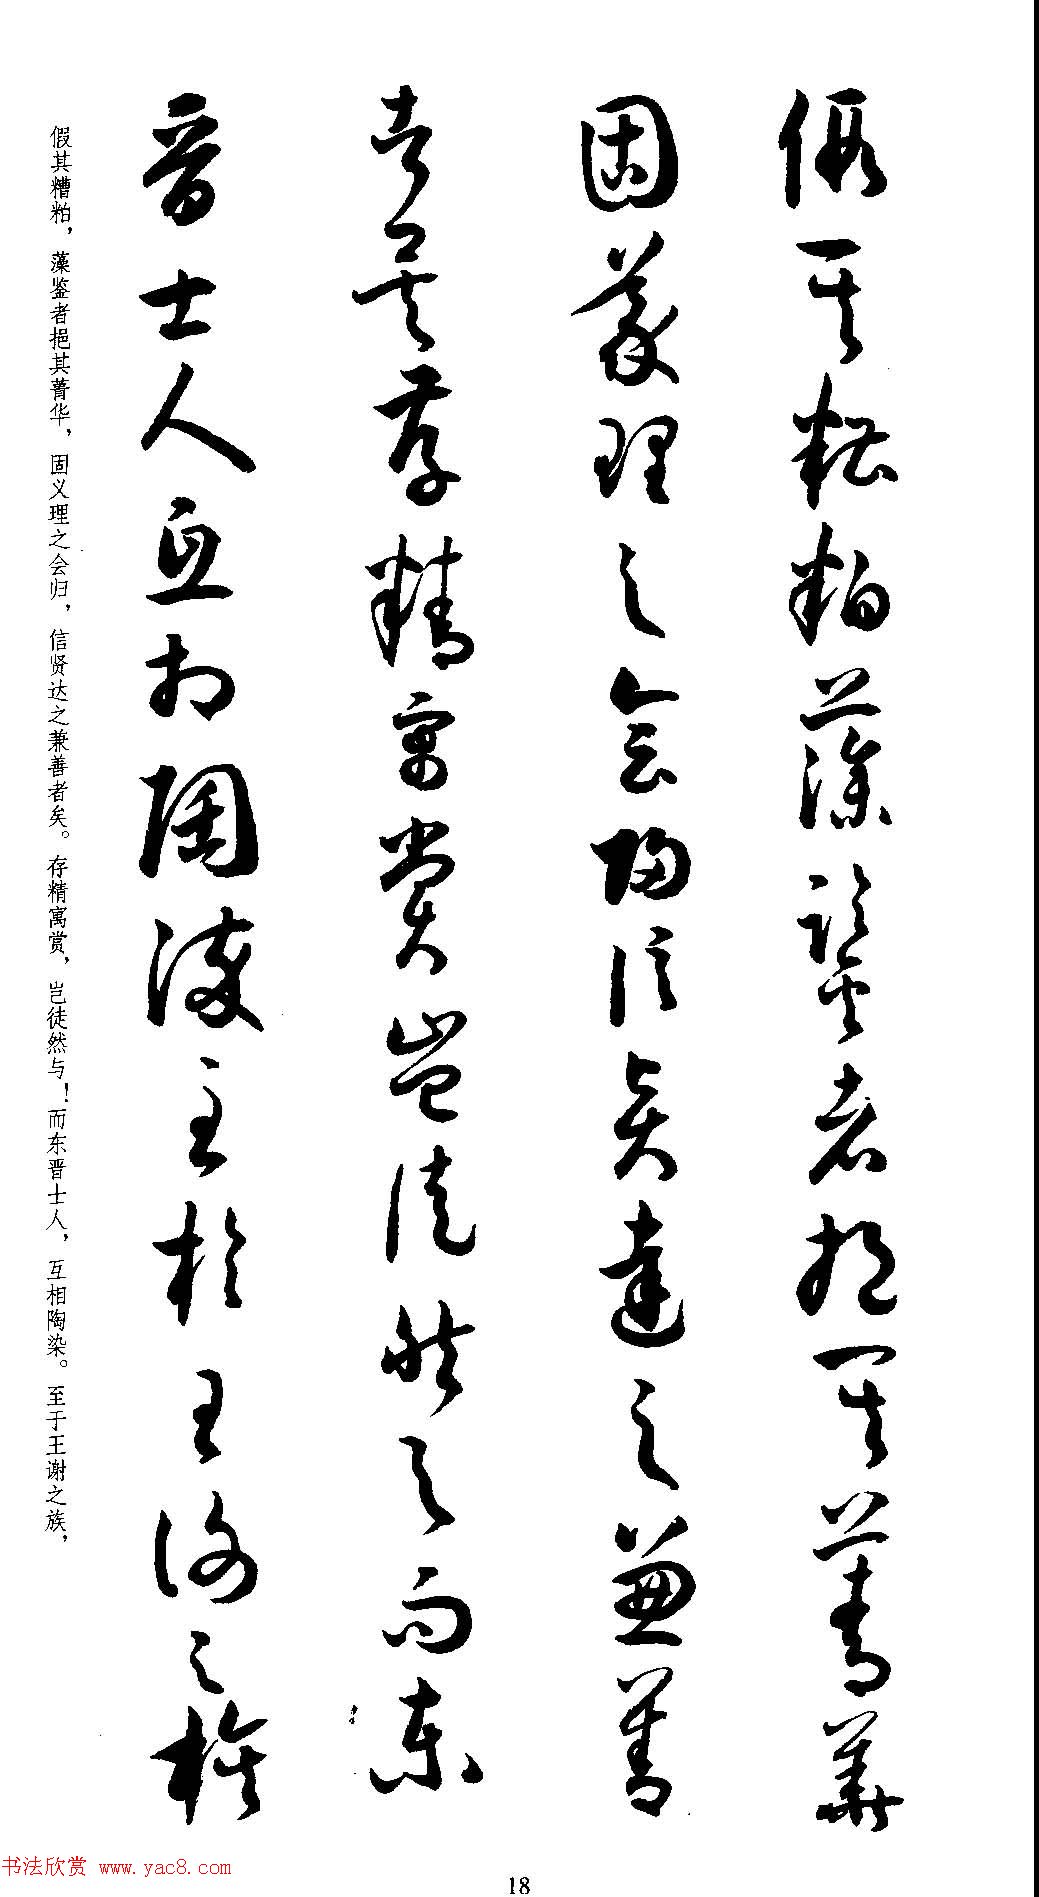 假其糟粕藻鉴者挹其菁華
固義理之会歸信賢達之兼善
者矣存精寓賞豈徒然与而東
晉士人互相陶染至於王謝之族
假其糟粕，藻鉴者挹其菁华，固义理之会归，信贤达之兼善者矣。存精寓赏，岂徒然与！而东晋士人，互相陶染。至于王谢之族，
书法欣赏 www.yac8.com
18